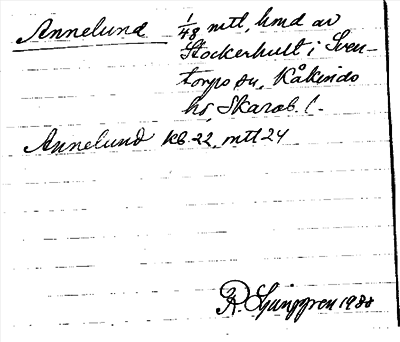 Annelund 1/48 mtl, hmd av
Stockerhult i Sven-
torps sn, Kåkinds
hd, Skarab. l.
Annelund KB 22, mtl 24
R. Ljunggren 1988